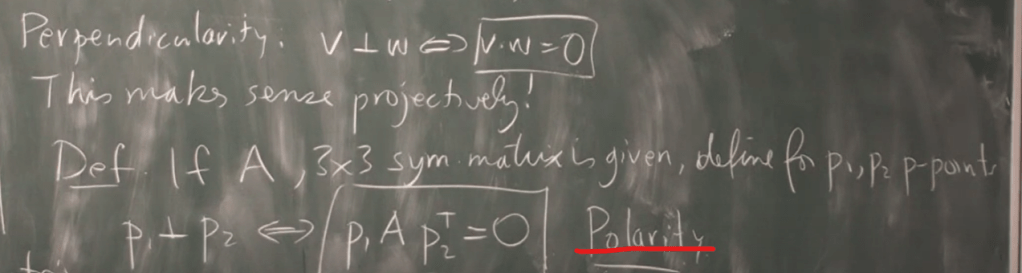 Perpendicularity. v ⊥ w ⇔ v·w = 0
This makes sense projectively!
Def. If A, 3x3 sym. matrix is given, define for p₁, p₂ p-points
p₁ ⊥ p₂ ⇔ p₁ A p₂ᵀ = 0 Polarity